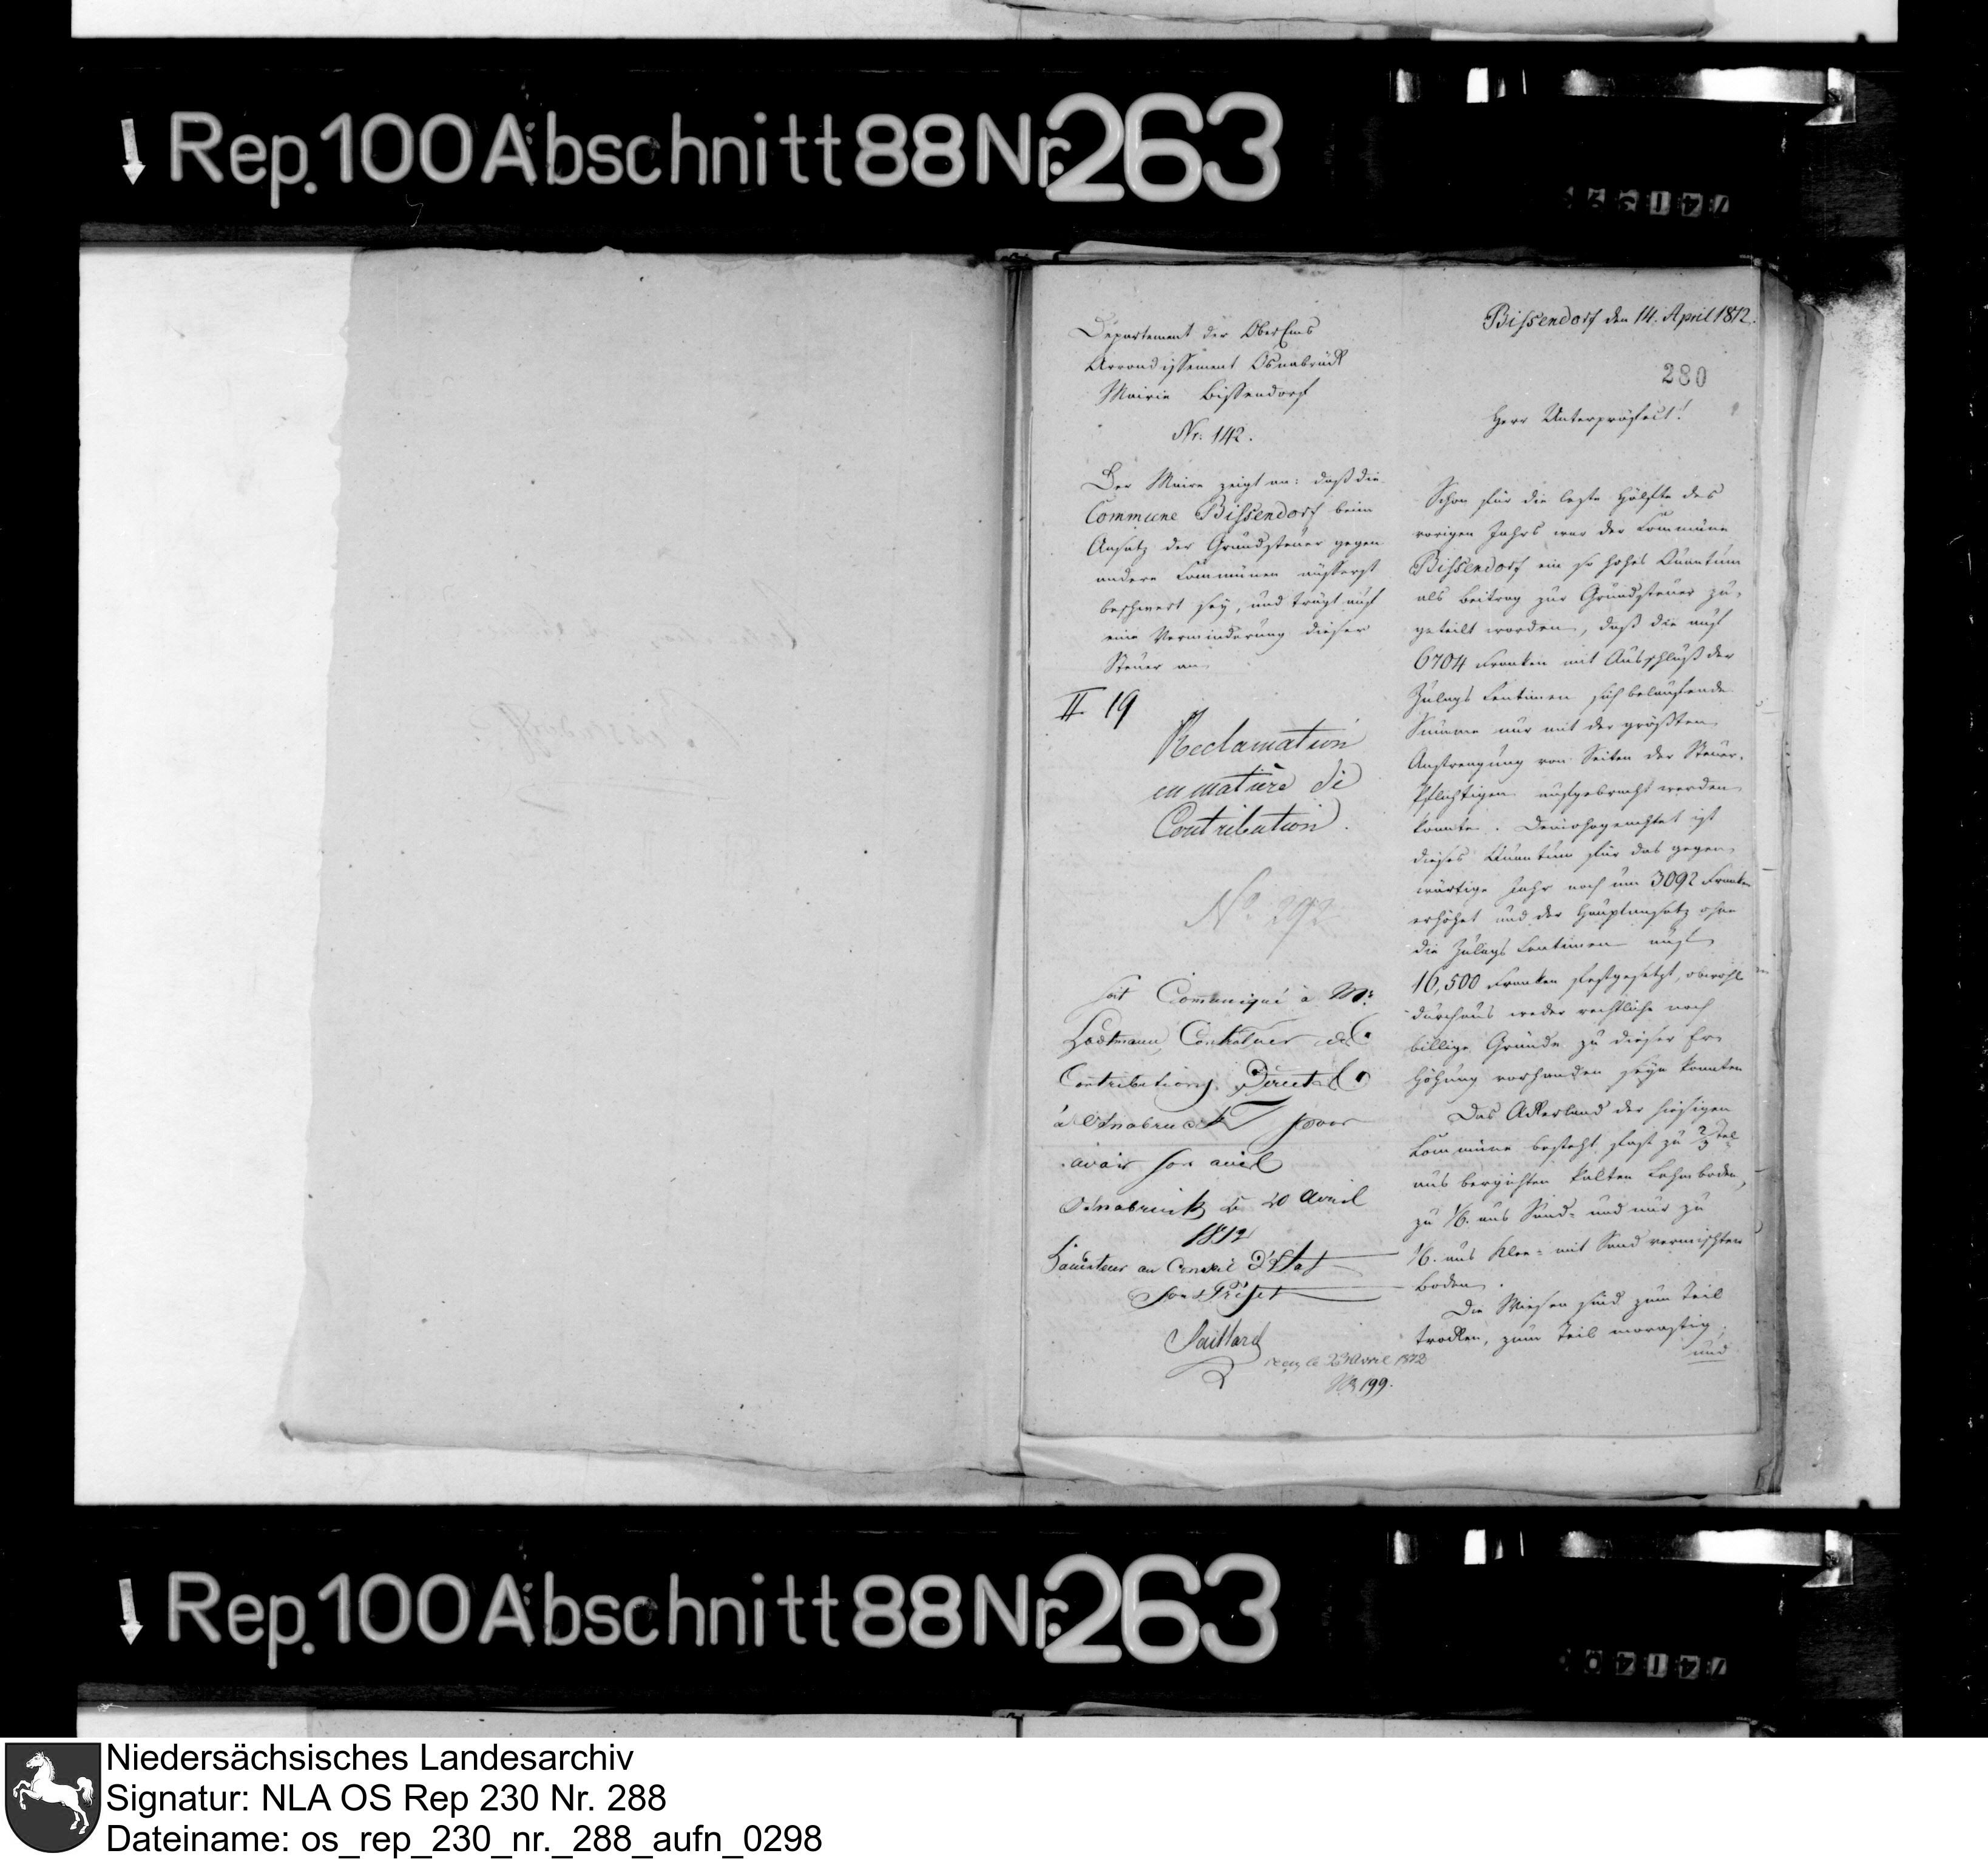 Rep. 100 Abschnitt 88 Nr. 263
Departement der OberEms
Arrondissement Osnabrück
Mairie Bissendorf
Nr. 142.
Der Maire zeigt an: daß die
Commune Bissendorf beim
Ansatz der Grundsteuer gegen
andere Communen äußerst
beschwert sey, und trägt auf
eine Verminderung dieser
Steuer an
II 19
Reclamation
en matière de
Contribution.
No 292
Soit Communiqué à Mr.
Contrôleur des
Contributions Directes
à Osnabruck pour
avoir son avis
Osnabruck le 20 avril
1812
L'auditeur au Conseil d'Etat
Sous Préfet
reçu le 23 Avril 1812
No 199.
Bissendorf den 14. April 1812.
280
Herr Unterpräfect!
Schon für die lezte Hälfte des
vorigen Jahrs war der Commüne
Bissendorf ein so hohes Quantum
als Beitrag zur Grundsteuer zu-
geteilt worden, daß die auf
6704 Franken mit Ausschluß der
Zulags Centimen sich belaufende
Summe nur mit der größten
Anstrengung von Seiten der Steuer-
Pflichtigen aufgebracht werden
konnte. Demohngeachtet ist
dieses Quantum für das gegen-
wärtige Jahr noch um 3092 Franken
erhöhet und der Hauptansatz ohne
die Zulags Centimen auf
16,500 Franken festgesetzt, obwohl
durchaus weder rechtliche noch
billige Gründe zu dieser Er-
höhung vorhanden seyn konnten
Das Ackerland der hiesigen
Commüne besteht fast zu 2/3tel
aus bergichten kalten Lehmboden,
zu 1/6. aus Sand- und nur zu
1/6. aus Klee- mit Sand vermischten
Boden.
Die Wiesen sind zum Teil
trocken, zum Teil morastig,
und
Rep. 100 Abschnitt 88 Nr. 263
Niedersächsisches Landesarchiv
Signatur: NLA OS Rep 230 Nr. 288
Dateiname: os_rep_230_nr._288_aufn_0298